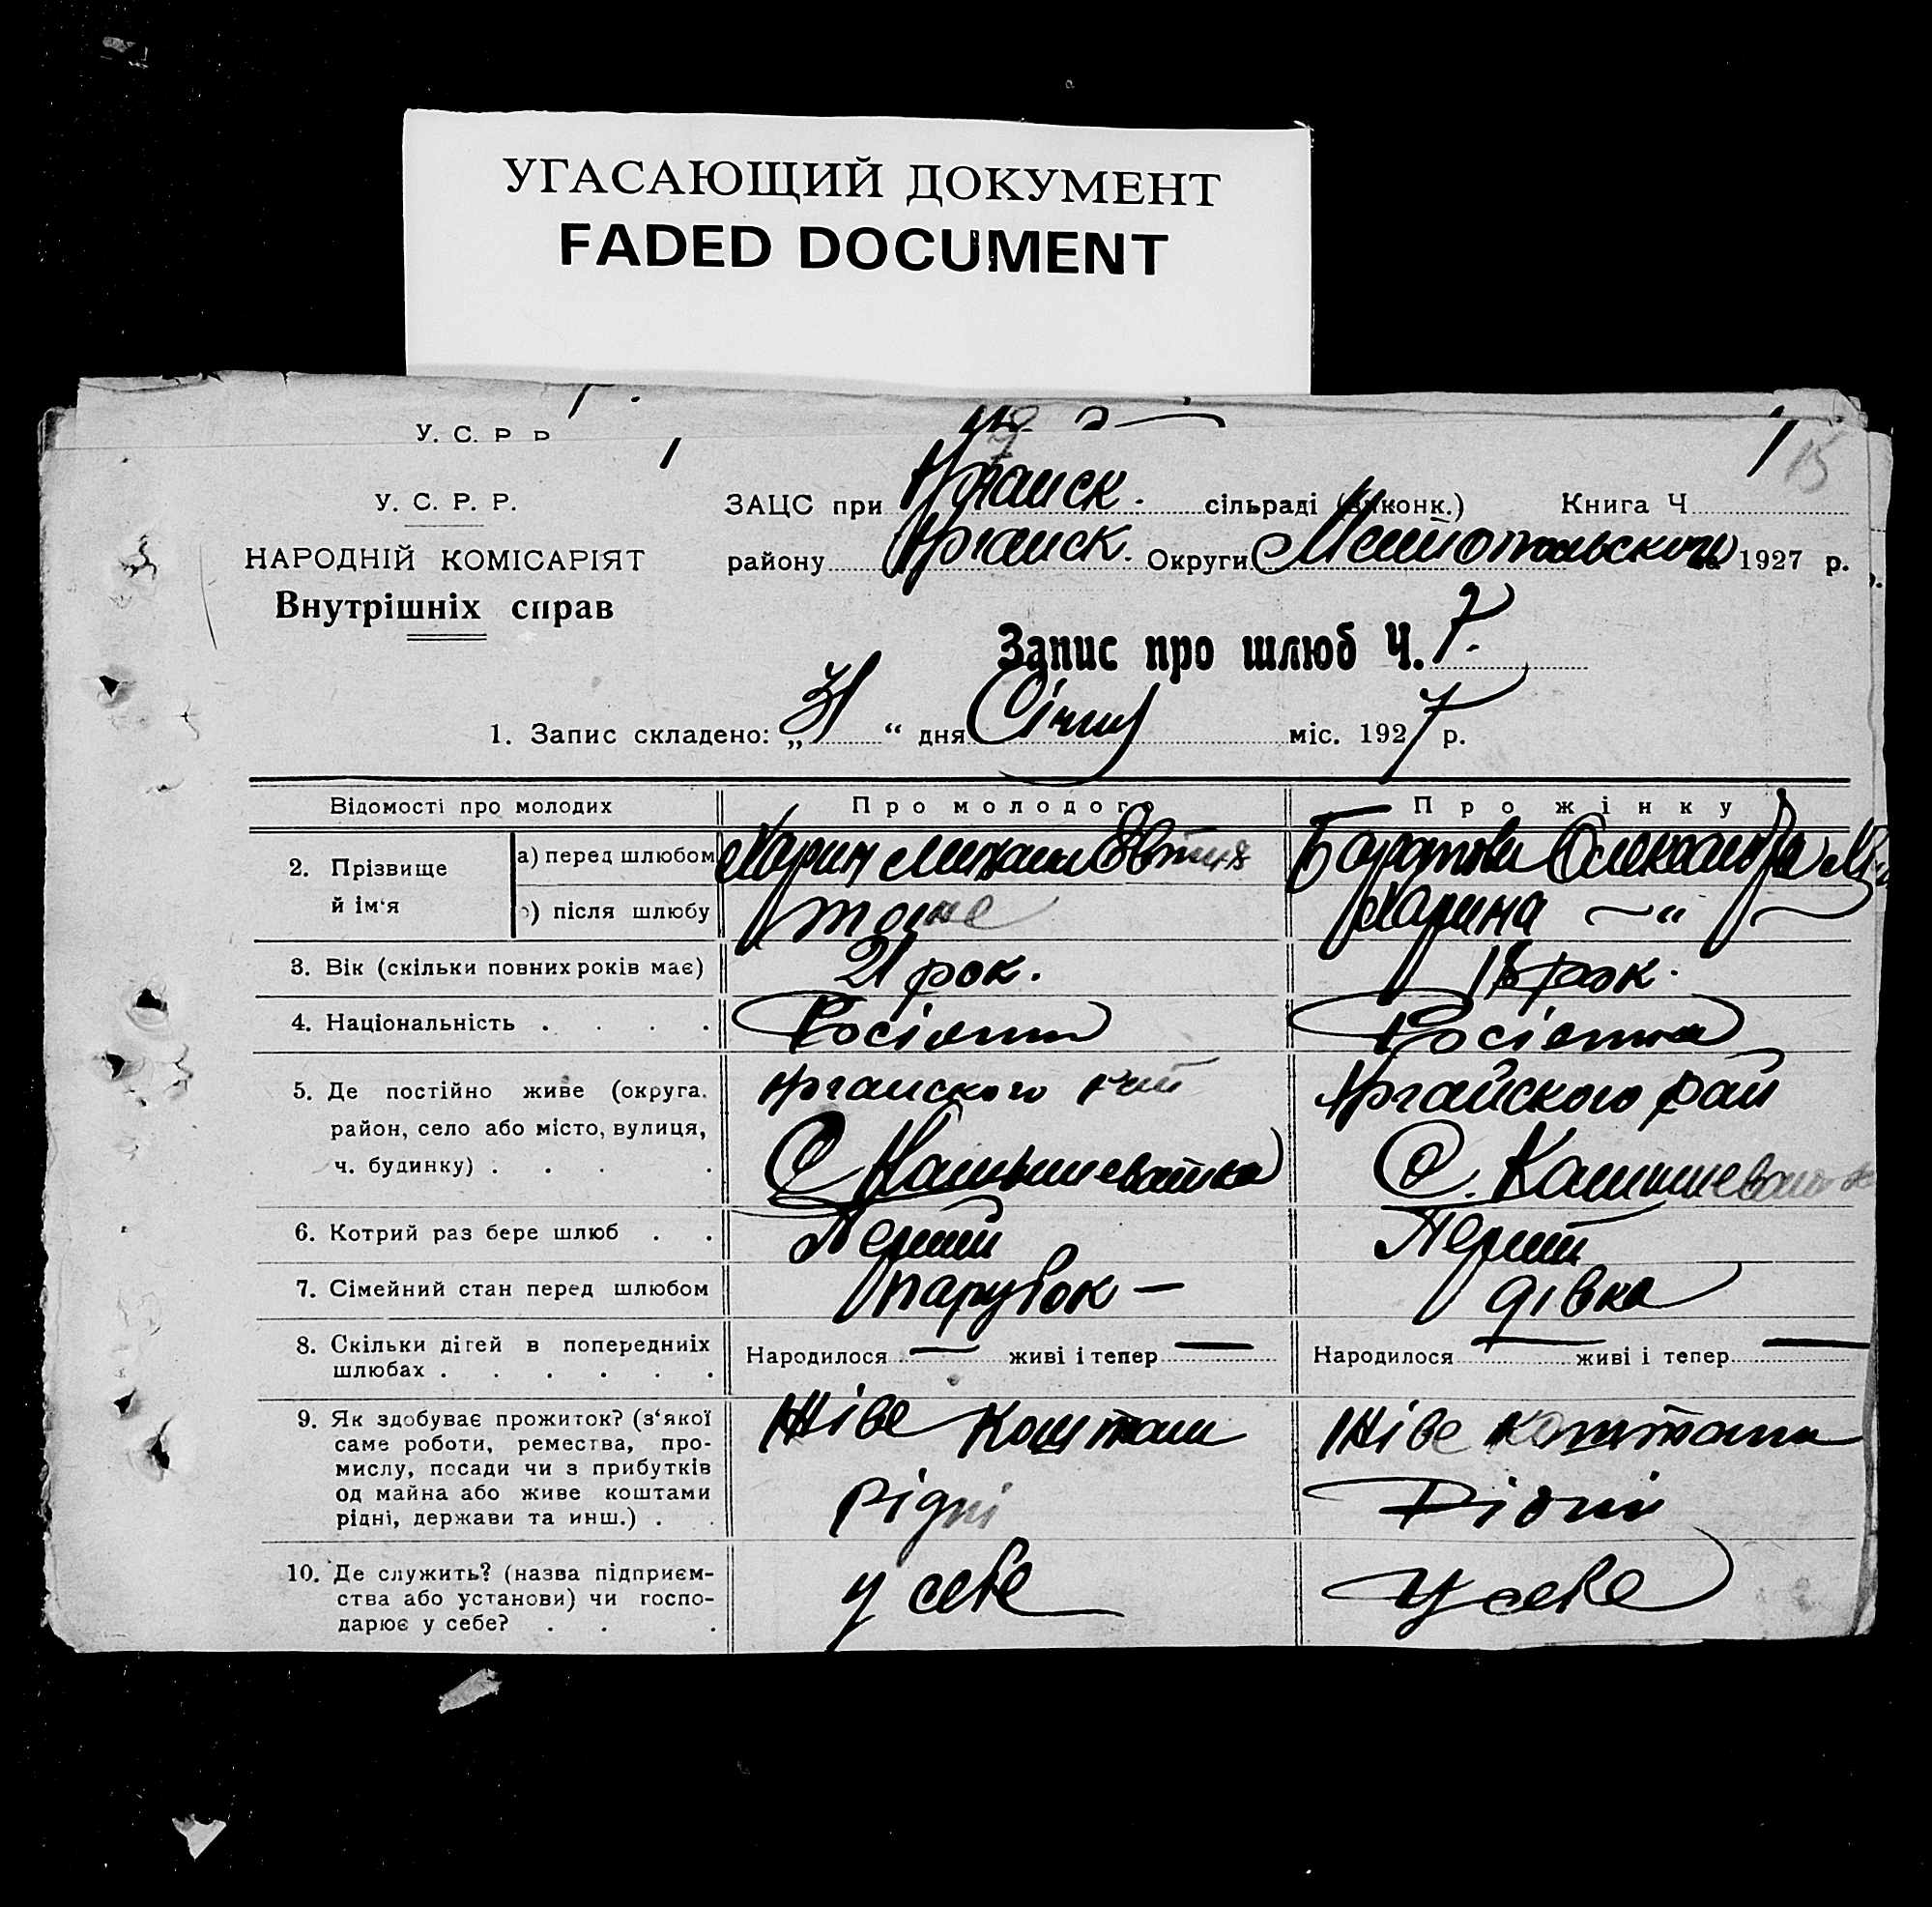 УГАСАЮЩИЙ ДОКУМЕНТ
FADED DOCUMENT
У. С. Р. Р.
1
1
15
У. С. Р. Р.
НАРОДНІЙ КОМІСАРІЯТ
Внутрішніх справ
ЗАЦС при сільраді (Виконк.) Книга Ч
району Округи 1927 р.
Запис про шлюб Ч. 7.
1. Запис складено: „31“ дня Січня міс. 1927 р.
Відомості про молодих Про молодого Про жінку
2. Прізвище й ім‘я
а) перед шлюбом Харин Михаил Олександра
б) після шлюбу тоже Харина — „ —
3. Вік (скільки повних років має) 21 рок. 18 рок.
4. Національність . . . . Росіянин Росіянка
5. Де постійно живе (округа, район, село або місто, вулиця, ч. будинку) . . . .
рай
С. С.
6. Котрий раз бере шлюб . . Перший Перший
7. Сімейний стан перед шлюбом парубок — дівка
8. Скільки дітей в попередніх шлюбах . . . . . . Народилося — живі і тепер — Народилося — живі і тепер —
9. Як здобуває прожиток? (з‘якої саме роботи, ремества, промислу, посади чи з прибутків од майна або живе коштами рідні, держави та инш.) . .
Живе коштами Живе коштами
рідні рідні
10. Де служить? (назва підприємства або установи) чи господарює у себе? . . . у себе у себе